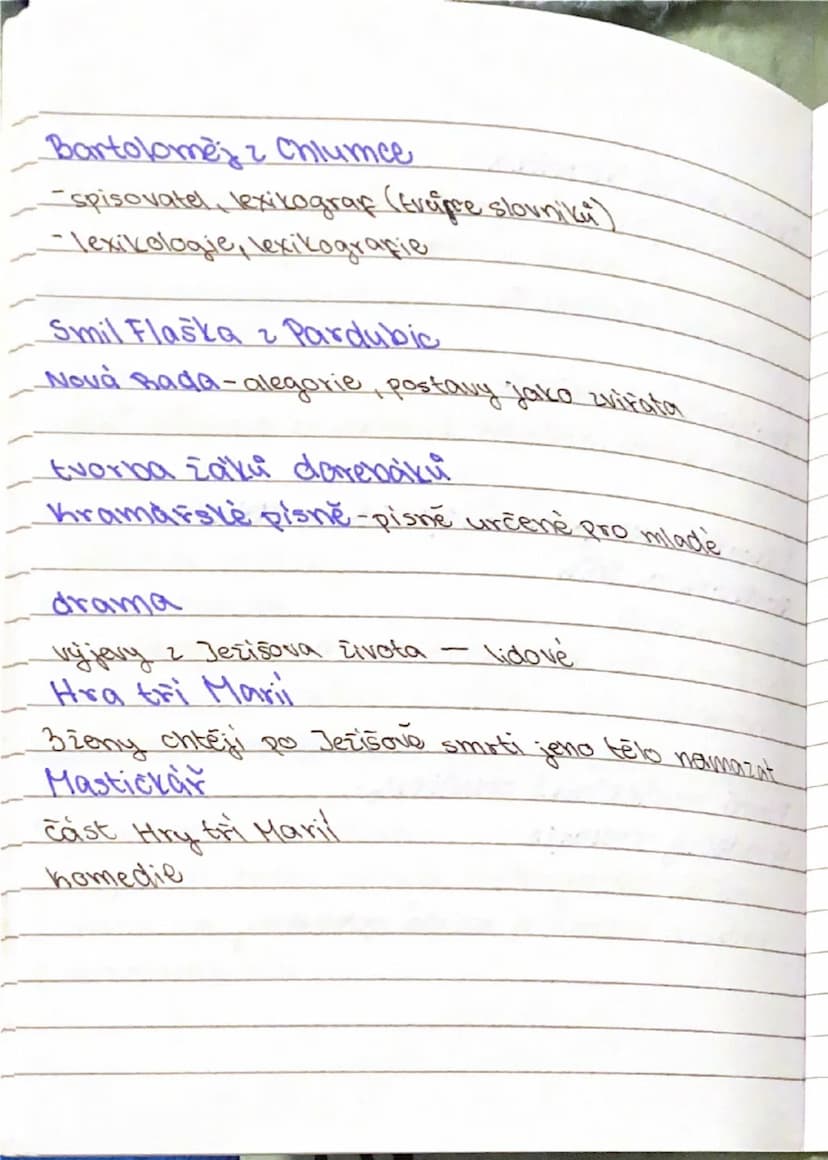 Bartoloměj z Chlumce
-spisovatel, lexikograf (tvůrce slovníků)
-lexikologie, lexikografie
Smil Flaška z Pardubic
Nová Rada-alegorie, postavy jako zvířata
tvorba žáků darebáků
Kramářské písně-písně určené pro mladé
drama
výjevy z Ježíšova života — lidové
Hra tří Marií
3 ženy chtějí po Ježíšově smrti jeho tělo namazat
Mastičkář
část Hry tří Marií
komedie